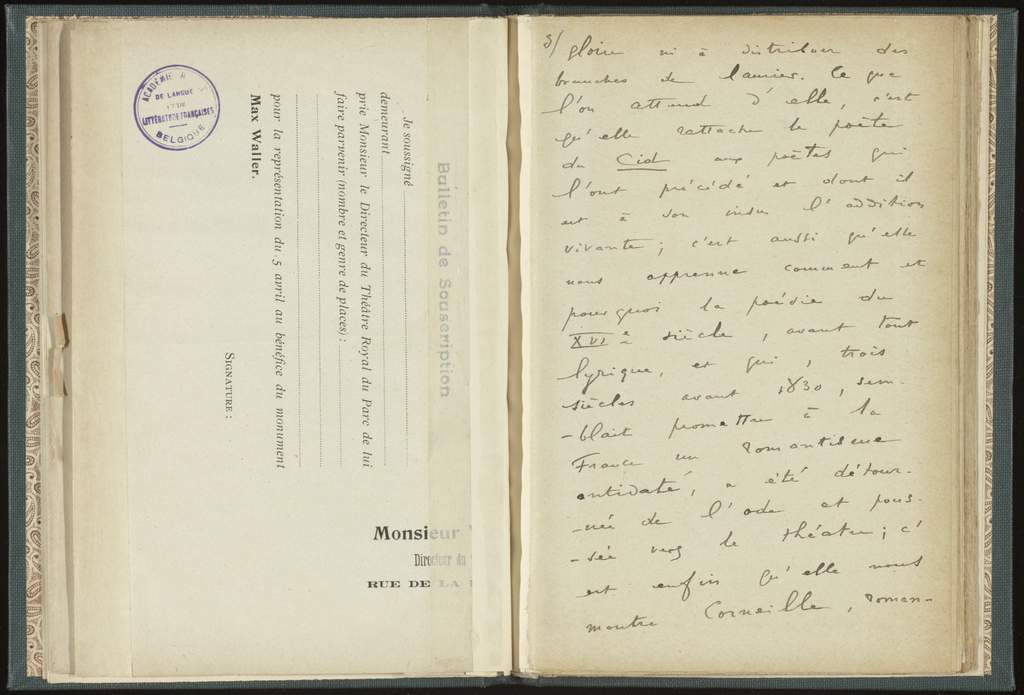 ACADÉMIE R
DE LANGUE
ET DE
LITTÉRATURE FRANÇAISES
BELGIQUE
Bulletin de Souscription
Je soussigné
demeurant
prie Monsieur le Directeur du Théâtre Royal du Parc de lui
faire parvenir (nombre et genre de places) :
pour la représentation du 5 avril au bénéfice du monument
Max Waller.
SIGNATURE :
Monsieur
Directeur du
RUE DE LA
3/ gloire ni à distribuer des
branches de laurier. Ce que
l'on attend d'elle, c'est
qu'elle rattache le poète
du Cid aux poètes qui
l'ont précédé et dont il
est à son insu l'addition
vivante ; c'est aussi qu'elle
nous apprenne comment et
pourquoi la poésie du
XVIe siècle, avant tout
lyrique, et qui, trois
siècles avant 1830, sem-
-blait promettre à la
France un romantisme
antidaté, a été détour-
-née de l'ode et pous-
-sée vers le théâtre ; c'
est enfin qu'elle nous
montre Corneille, roman-